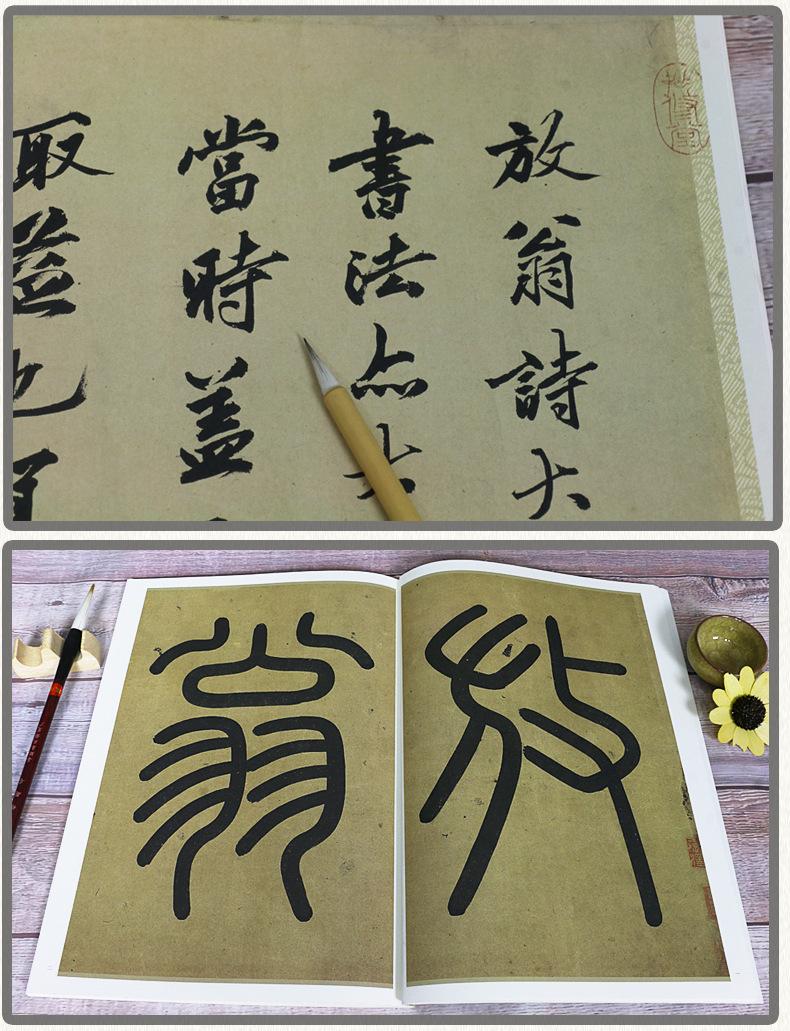 放翁詩大
書法亦
當時蓋
取益也
放
翁